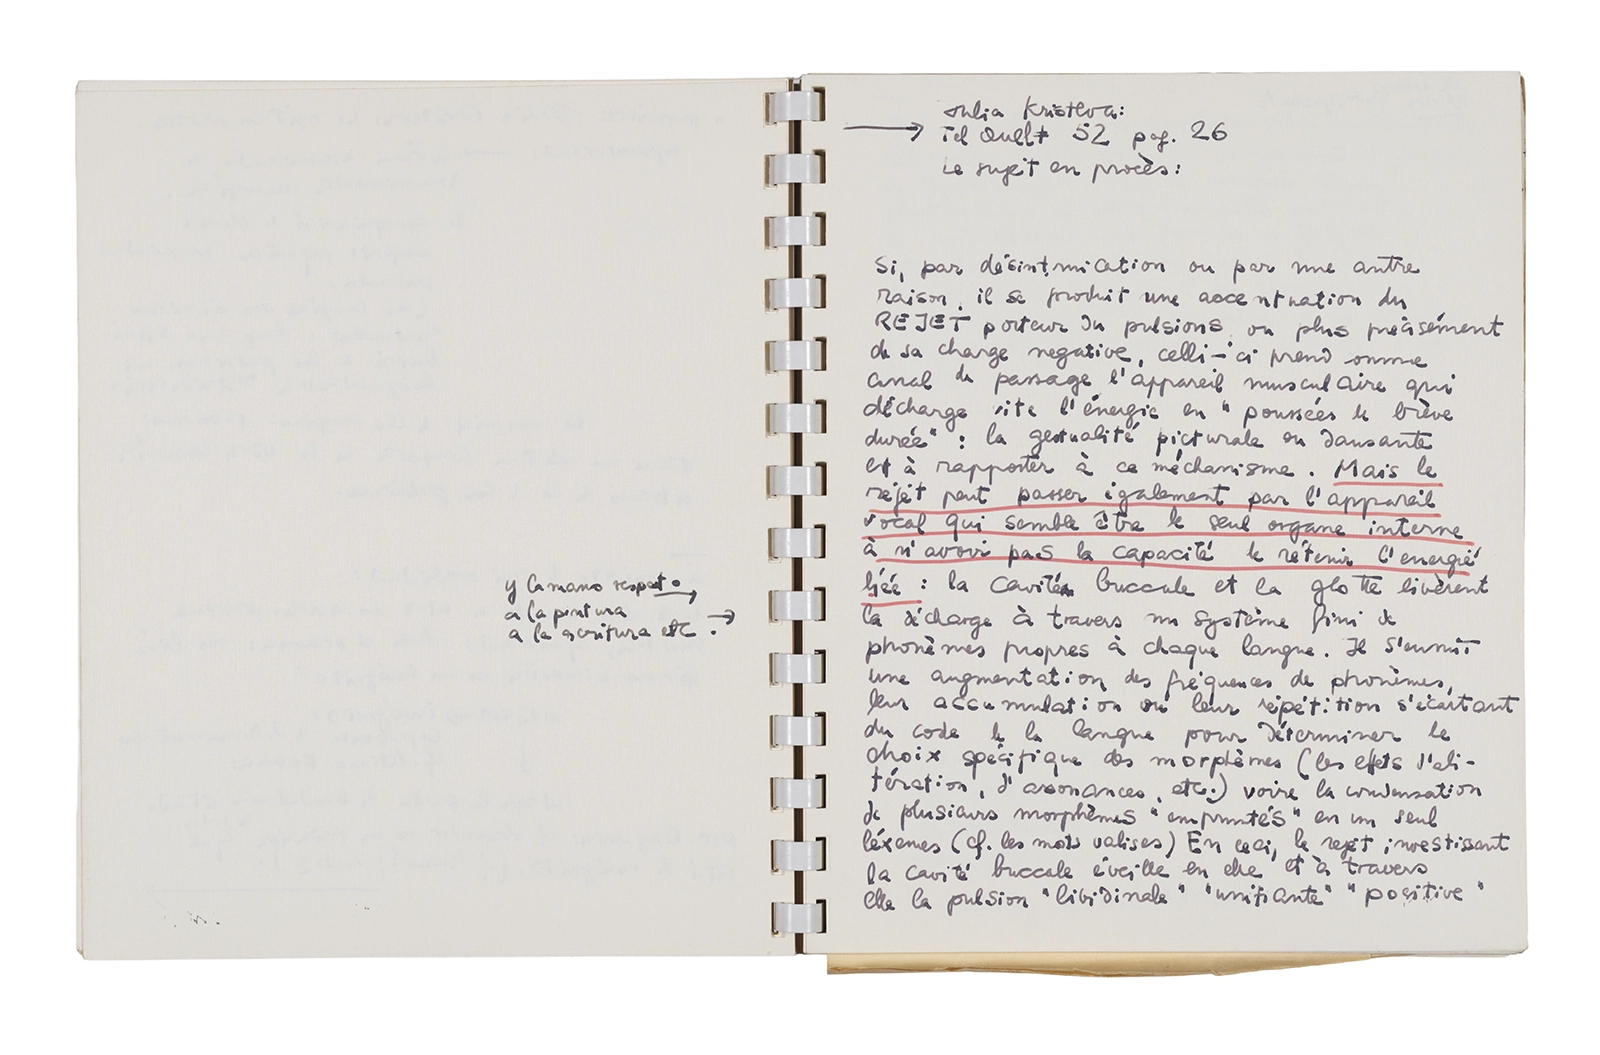 y la mano respeto
a la pintura
a la escritura etc.
Julia Kristeva:
Tel Quel # 52 pag. 26
Le sujet en procès:
Si, par désintrication ou par une autre
raison, il se produit une accentuation du
REJET porteur du pulsions ou plus précisément
de sa charge negative, celli-ci prend comme
canal de passage l'appareil musculaire qui
décharge vite l'énergie en "poussées de brève
durée" : la gestualité picturale ou dansante
est à rapporter à ce méchanisme. Mais le
rejet peut passer également par l'appareil
vocal qui semble être le seul organe interne
à n'avoir pas la capacité de rétenir l'energié
liée : la cavité buccale et la glotte livèrent
la décharge à travers un système fini de
phonèmes propres à chaque langue. Il s'ensuit
une augmentation des fréquences de phonèmes,
leur accumulation ou leur répétition s'écartant
du code de la langue pour déterminer le
choix spécifique des morphèmes (les effets d'ali-
tération, d'assonances, etc.) voire la condensation
de plusieurs morphèmes "empruntés" en un seul
léxemes (cf. les mots valises) En ceci, le rejet investissant
la cavité buccale éveille en elle et à travers
elle la pulsion "libidinale" "unifiante" "positive"